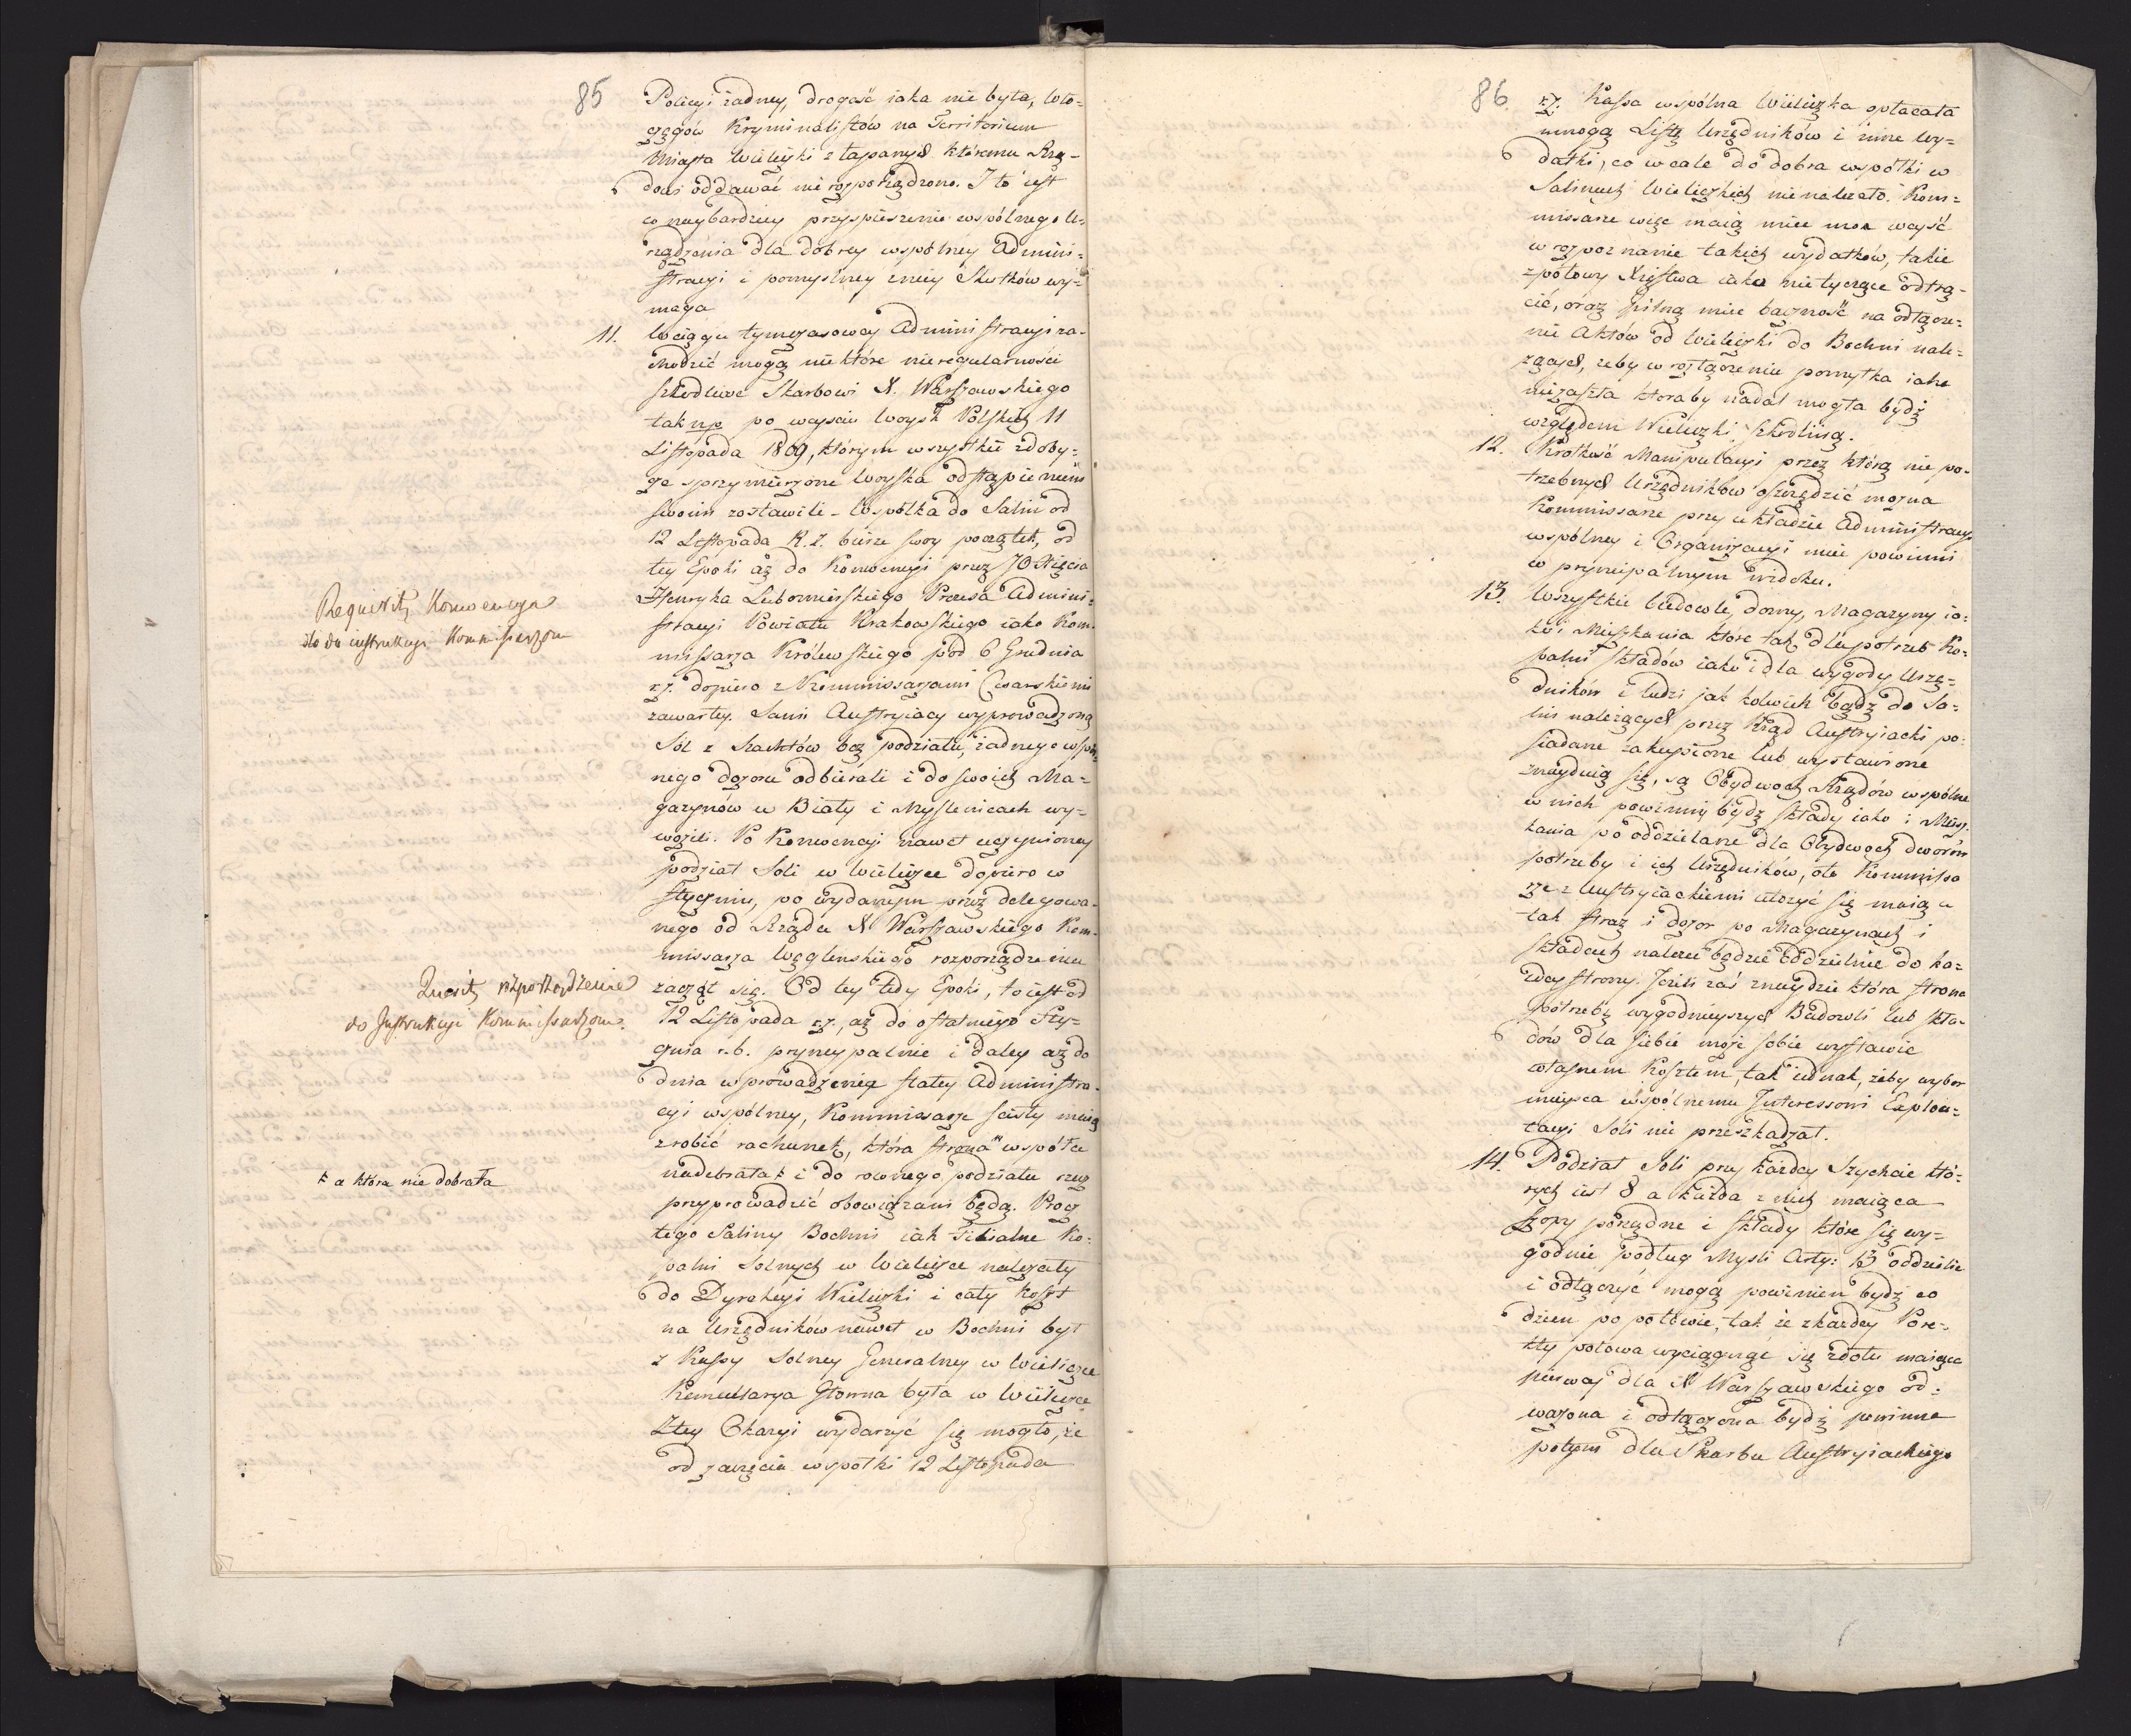 85
Policyi żadney, drogość iaka nie była, Wło=
częgów Kryminalistów na Territorium
Miasta Wieliczki złapanych któremu Rzą-
dowi oddawać nie rozporządzono. I to iest
co naybardziey przyspieszenie wspólnego U-
rządzenia dla dobrey wspólney Admini=
stracyi i pomyslney zniey Skutków wy=
maga
11. W ciągu tymczasowey Administracyi za-
chodzić mogą niektóre nieregularności
szkodliwe Skarbowi X. Warszawskiego
tak np po weysciu Woysk Polskich 11
Listopada 1809, którym wszystkie zdoby=
ze sprzymierzone Woyska odstąpieniem
swoim zostawili - Wspólka do Salin od
12 Listopada R. Z. bierze swoy początek, od
tey Epoki aż do Konwencyi przez JO Xięcia
Henryka Lubomirskiego Prezesa Admini=
stracyi Powiatu Krakowskiego iako Kom-
missarza Królewskiego pod 6 Grudnia
r.z. dopiero z Kommissarzami Cesarskiemi
zawartey. Sami Austryiacy wyprowadzoną
Sól z Szachtów bez podziału, żadnego wspól
nego dozoru odbierali i do swoich Ma=
gazynów w Biały i Myslenicach wy=
wozili. Po Konwencyi nawet uczynioney
podział Soli w Wieliczce dopiero w
Styczniu, po wydanym przez delegowa-
nego od Rządu X Warszawskiego Kom-
missarza Węglenskiego rozporządzeniu
zaczął się. Od tey tedy Epoki, to iest od
12 Listopada r.z. aż do ostatniego Sty=
cznia r.b. pryncypalnie i daley aż do
dnia wprowadzenia stałey Administra-
cyi wspólney, Kommissarze scisły maią
zrobić rachunek, która strona wspólce
nadebrała ⱡ i do rownego podziału rzecz
przyprowadzić obowiązani będą. Procz
tego Saliny Bochni iak Filialne Ko=
palni Solnych w Wieliczce należały
do Dyrekcyi Wieliczki i cały koszt
na Urzędników nawet w Bochni był
z Kassy Solney Generalney w Wieliczce
Kancellarya Głowna była w Wieliczce
Ztey Okazyi wydarzyć się mogło, że
od zaczęcia wspólki 12 Listopada
Konwencya
do instrukcyi Kommissarzom
rozporządzenie
do Instrukcyi Kommissarzom.
ⱡ a która nie dobrała
86.
r.z. Kassa wspólna Wieliczka opłacała
mnogą Listę Urzędników i inne Wy=
datki, co wcale do dobra wspólki w
Salinach Wieliczkich nienależało. Kom=
missarze więc maią mieć weysć
w rozpoznanie takich wydatków, takie
zpołowy Xięstwa iako nietyczące odtrą-
cić, oraz pilną mieć baczność na odłącze=
nie Aktów od Wieliczki do Bochni nale=
żących, żeby w rozłączeniu pomyłka iaka
niezaszła któraby nadal mogła bydź
względem Wieliczki szkodliwą.
12. Krótkość Manipulacyi przez którą nie po-
trzebnych Urzędników oszczędzić można
Kommissarze przy układzie Administracyi
wspólney i Organizacyi mieć powinni
w pryncipalnym widoku.
13. Wszystkie budowle, domy, Magazyny ia=
ko i Mieszkania które tak dla potrzeb Ko=
palni Składów iako i dla wygody Urzę=
dników i ludzi jak kolwiek bądź do Sa=
lin należących przez Rząd Austryiacki po=
siadane zakupione lub wystawione
znayduią się, są Obydwoch Rządów wspólne
w nich powinny bydź składy iako i Miesz-
kania po oddzielane dla Obydwoch dworów
potrzeby i ich Urzędników, oto Kommissa
rze z Austryiackiemi ułożyć się maią a
tak straż i dozor po Magazynach i
składach należeć będzie oddzielnie do ka=
żdey strony. Jeżeli zaś znaydzie która strona
potrzebę wygodnieyszych Budowli lub skła-
dów dla siebie może sobie wystawić
własnem Kosztem, tak iednak, żeby wybor
mieysca wspólnemu Interessowi Exploa=
tacyi Soli nie przeszkadzał.
14. Podział Soli przy każdey Szychcie któ=
rych iest 8 a każda z nich maiąca
szopy porządne i składy które się wy=
godnie podług Mysli Arty: 13 oddzielić
i odłączyć mogą powinien bydź co
dzien po połowie, tak że zkażdey Pore-
kły połowa wyciągnąć się zdołu maiąca
pierwey dla X Warszawskiego od=
ważona i odłączona bydź powinna
potym dla Skarbu Austryiackiego